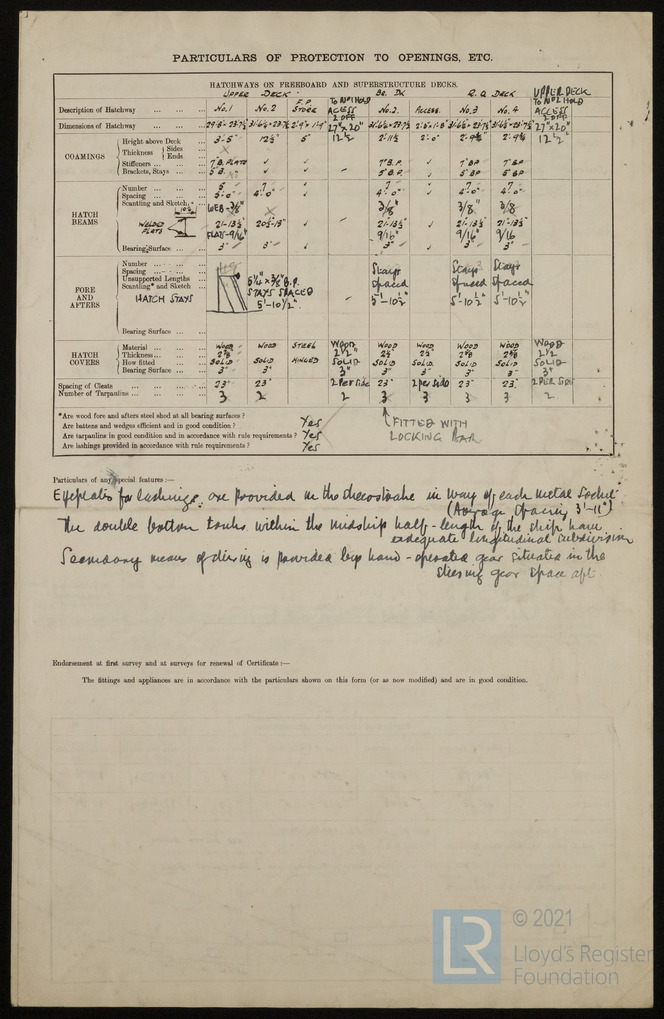 PARTICULARS OF PROTECTION TO OPENINGS, ETC.
HATCHWAYS ON FREEBOARD AND SUPERSTRUCTURE DECKS.
UPPER DECK R.Q. DECK UPPER DECK
Description of Hatchway No.1 No.2 F.P. STORE TO No1 HOLD ACCESS 2 OFF No.2. ACCESS. No.3 No.4 TO No2 HOLD ACCESS 2 OFF
Dimensions of Hatchway 27"x20" 27"x20"
COAMINGS
Height above Deck 3'-5" 12½" 5" 12½ 2'-11½ 2'-0" 2'-9½ 2'-9½ 12½"
Thickness Sides
Ends
Stiffeners 7" B. PLATE 7" B.P. 7" BP 7" BP
Brackets, Stays 5" B. 5" B.P. 5" BP 5" BP
HATCH BEAMS
Number 5 7 7 7 7
Spacing 4'-0" 4'-0" 4'-0" 4'-0"
Scantling and Sketch WEB-3/8" 3/8" 3/8" 3/8
WELDED FLATS 21-13½ 21-13½ 21-13½
FLATS-9/16" 9/16" 9/16" 9/16
Bearing Surface 3" 3" 3" 3" 3"
FORE AND AFTERS
Number
Spacing
Unsupported Lengths
Scantling* and Sketch
HATCH STAYS
STAYS SPACED 5'-10½"
Stays Spaced 5'-10½" Stays Spaced 5'-10½" Stays Spaced 5'-10½"
Bearing Surface
HATCH COVERS
Material WOOD WOOD STEEL WOOD WOOD WOOD WOOD WOOD WOOD
Thickness 2½" 2½ 2½" 2½
How fitted SOLID SOLID HINGED SOLID SOLID SOLID SOLID SOLID SOLID
Bearing Surface 3" 3" 3" 3" 3" 3" 3" 3"
Spacing of Cleats 23" 23" 2 Per side 23" 2 per side 23" 23" 2 PER SIDE
Number of Tarpaulins 3 2 2 3 3 3 3 2
*Are wood fore and afters steel shod at all bearing surfaces?
Are battens and wedges efficient and in good condition? Yes
Are tarpaulins in good condition and in accordance with rule requirements? Yes
Are lashings provided in accordance with rule requirements? Yes
FITTED WITH
LOCKING BAR
Particulars of any special features:—
Eyeplates for lashings are provided in the sheerstrake in way of each metal socket
(Average spacing 3'-11")
The double bottom tanks within the midship half-length of the ship have
adequate longitudinal subdivision
Secondary means of is provided by hand-operated gear situated in the
steering gear space aft
Endorsement at first survey and at surveys for renewal of Certificate:—
The fittings and appliances are in accordance with the particulars shown on this form (or as now modified) and are in good condition.
LR
© 2021
Lloyd's Register
Foundation